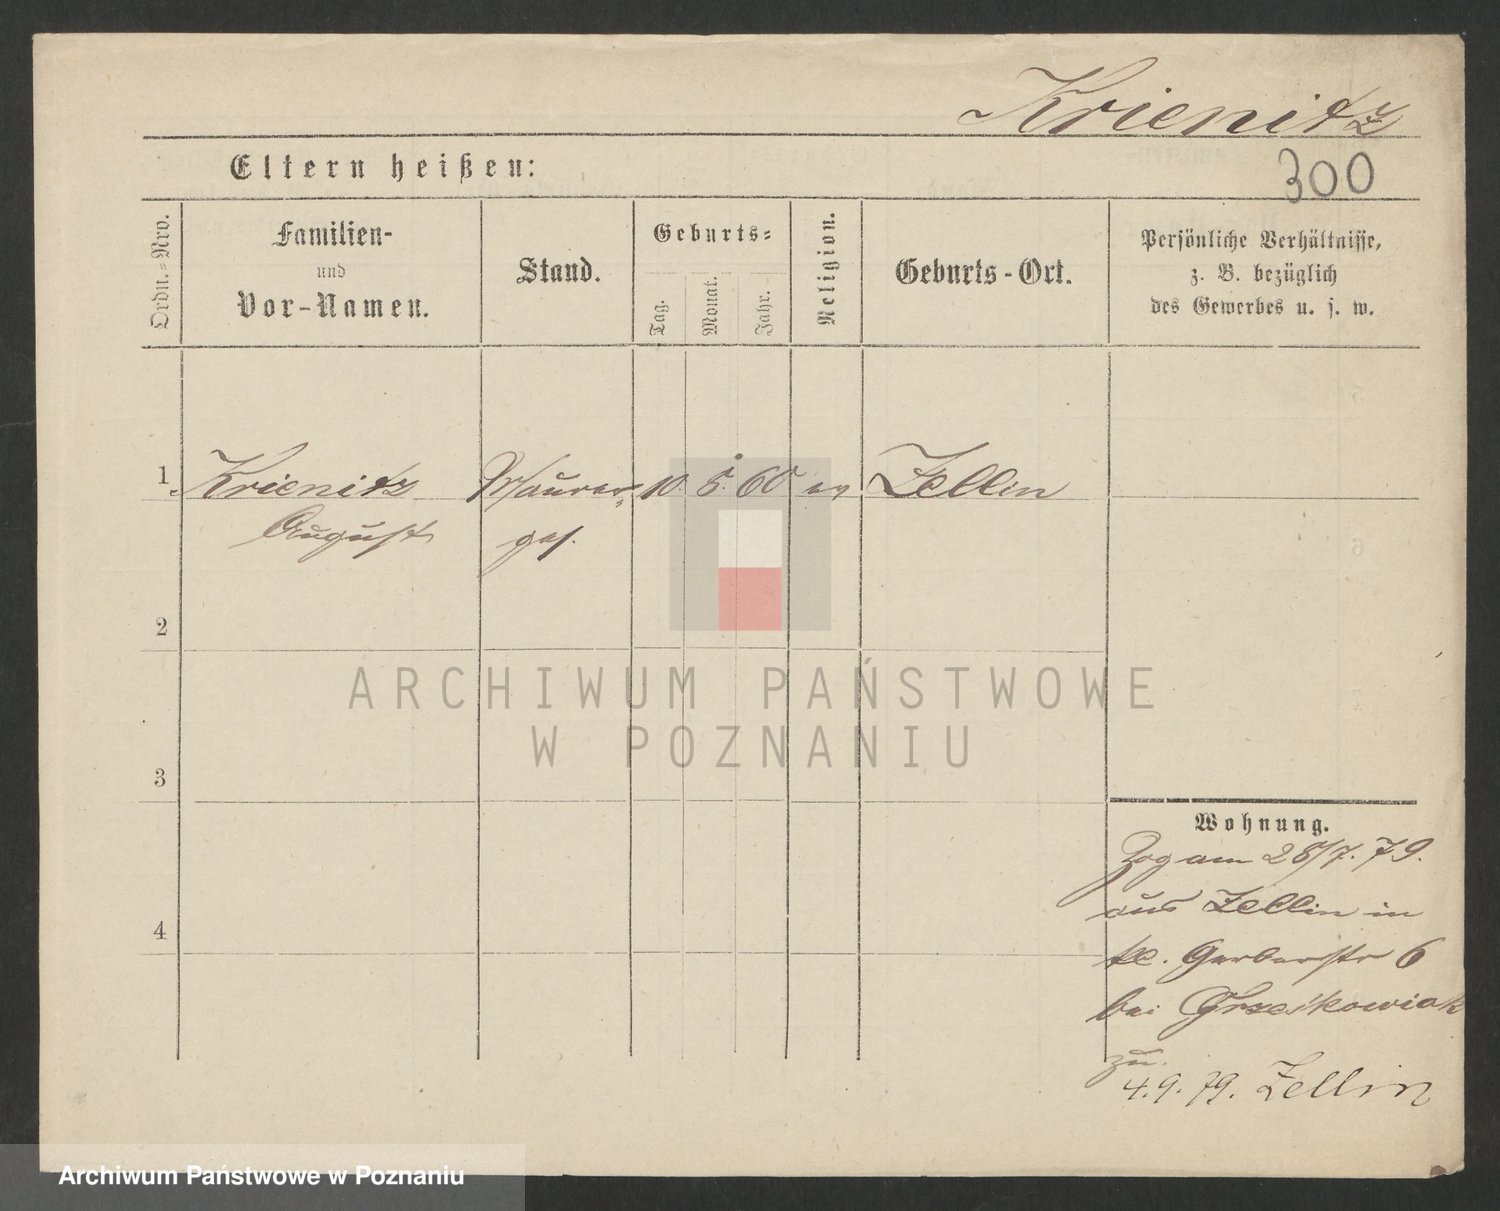 Krienitz
Eltern heißen:
300
Ordn.=Nro.
Familien-
und
Vor-Namen.
Stand.
Geburts=
Tag.
Monat.
Jahr.
Religion.
Geburts-Ort.
Persönliche Verhältnisse,
z. B. bezüglich
des Gewerbes u. s. w.
1
Krienitz Maurer- 10. 5. 60 ev Zellin
August ges.
2
ARCHIWUM PAŃSTWOWE
W POZNANIU
3
Wohnung.
Zog am 28/7. 79.
aus Zellin in
4
kl. Gerberstr 6
bei Grzeskowiak
zu.
4.9.79. Zellin
Archiwum Państwowe w Poznaniu